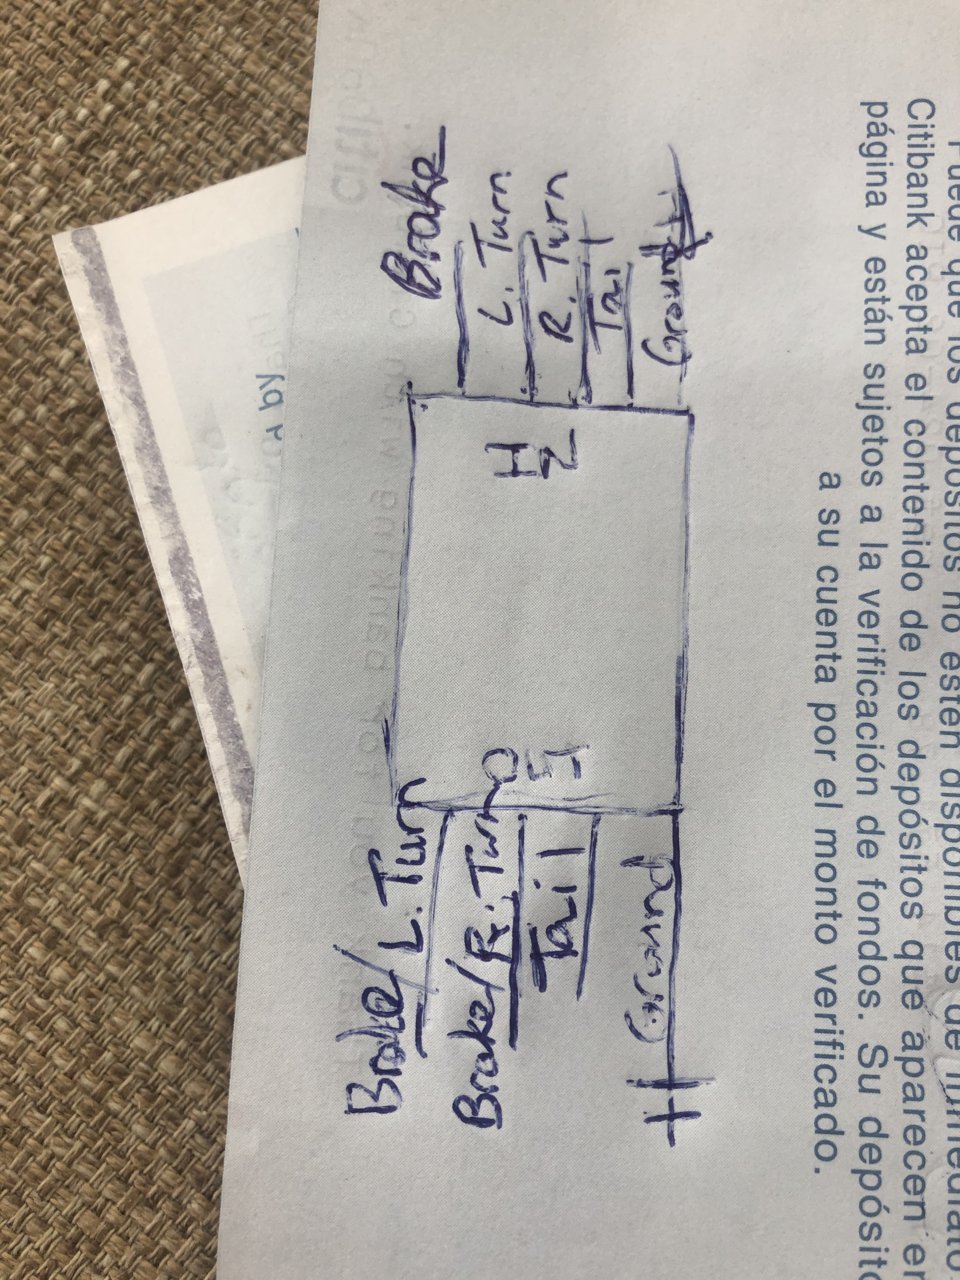 Brake/L. Turn
Brake/R. Turn
Tail
Ground
OUT
IN
Brake
L. Turn
R. Turn
Tail
Ground
depósitos no estén disponibles de
Citibank acepta el contenido de los depósitos que aparecen en
página y están sujetos a la verificación de fondos. Su depósito
a su cuenta por el monto verificado.
by